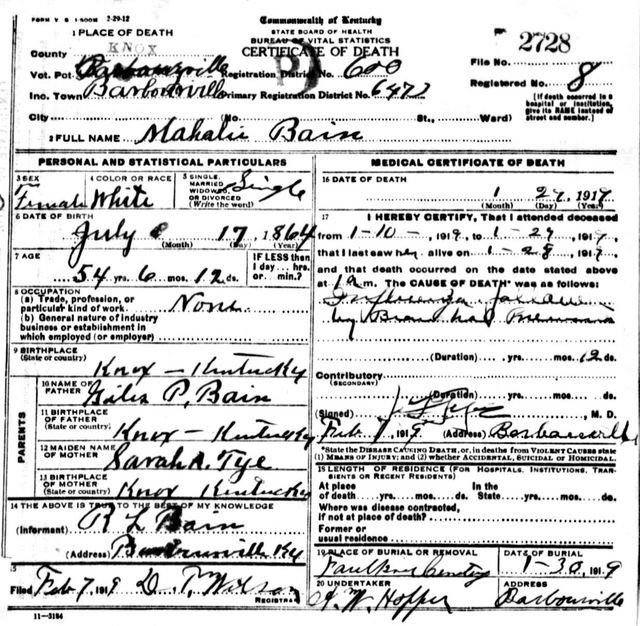 FORM V. S. 1-500M 2-29-12
Commonwealth of Kentucky
STATE BOARD OF HEALTH
BUREAU OF VITAL STATISTICS
CERTIFICATE OF DEATH
1 PLACE OF DEATH
County KNOX
Vot. Pct. Barbourville Registration District No. 600
Inc. Town Barbourville Primary Registration District No. 6472
City (No. St., Ward)
File No. 2728
Registered No. 8
[If death occurred in a
hospital or institution,
give its NAME instead of
street and number.]
2 FULL NAME Mahalie Bain
PERSONAL AND STATISTICAL PARTICULARS
3 SEX
Female
4 COLOR OR RACE
White
5 SINGLE,
MARRIED
WIDOWED,
OR DIVORCED
(Write the word)
Single
6 DATE OF BIRTH
July 17, 1864
(Month) (Day) (Year)
7 AGE
54 yrs. 6 mos. 12 ds.
IF LESS than
1 day... hrs.
or min.?
8 OCCUPATION
(a) Trade, profession, or
particular kind of work None
(b) General nature of industry
business or establishment in
which employed (or employer)
9 BIRTHPLACE
(State or country)
Knox - Kentucky
PARENTS
10 NAME OF
FATHER
Giles P. Bain
11 BIRTHPLACE
OF FATHER
(State or country)
Knox - Kentucky
12 MAIDEN NAME
OF MOTHER
Sarah A. Tye
13 BIRTHPLACE
OF MOTHER
(State or country)
Knox Kentucky
14 THE ABOVE IS TRUE TO THE BEST OF MY KNOWLEDGE
(Informant) R L Bain
(Address) Barbourville Ky
15
Filed Feb 7, 1919 D. T. Wilson
REGISTRAR
11-3184
MEDICAL CERTIFICATE OF DEATH
16 DATE OF DEATH
1 29, 1919
(Month) (Day) (Year)
17 I HEREBY CERTIFY, That I attended deceased
from 1-10-, 1919, to 1-29, 1919
that I last saw her alive on 1-28, 1919
and that death occurred on the date stated above
at 1 a m. The CAUSE OF DEATH* was as follows:
Influenza followed
by Bronchial Pneumonia
(Duration) yrs. mos. 12 ds.
Contributory
(SECONDARY)
(Duration) yrs. mos. ds.
(Signed) Tye, M. D.
Feb 7, 1919 (Address) Barbourville
*State the DISEASE CAUSING DEATH, or, in deaths from VIOLENT CAUSES state
(1) MEANS OF INJURY; and (2) whether ACCIDENTAL, SUICIDAL or HOMICIDAL.
18 LENGTH OF RESIDENCE (FOR HOSPITALS, INSTITUTIONS, TRANSIENTS OR RECENT RESIDENTS)
At place
of death yrs. mos. ds.
In the
State yrs. mos. ds.
Where was disease contracted,
if not at place of death?
Former or
usual residence
19 PLACE OF BURIAL OR REMOVAL
Faulkner Cemetery
DATE OF BURIAL
1-30, 1919
20 UNDERTAKER
A. W. Hopper
ADDRESS
Barbourville